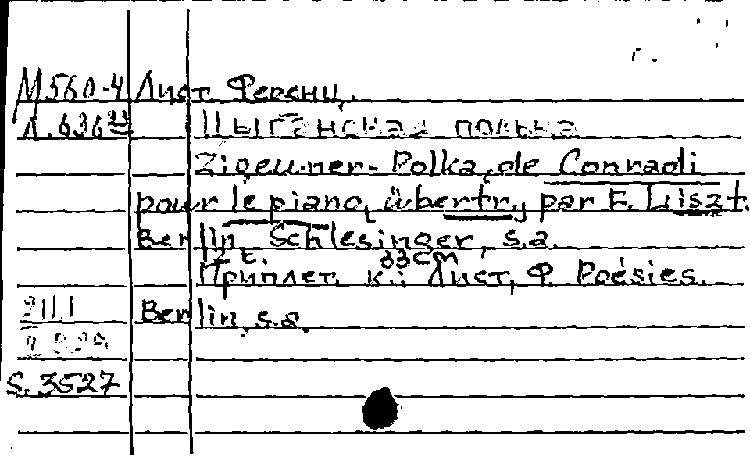 М560-4 Лист Ференц.
Л.636 Цыганская полька
Zigeuner-Polka, de Conradi
pour le piano, übertr., par F. Liszt.
Berlin, Schlesinger, s.a.
33 cm
Приплет. к.: Лист, Ф. Poésies.
Berlin, s.a.
S. 3527